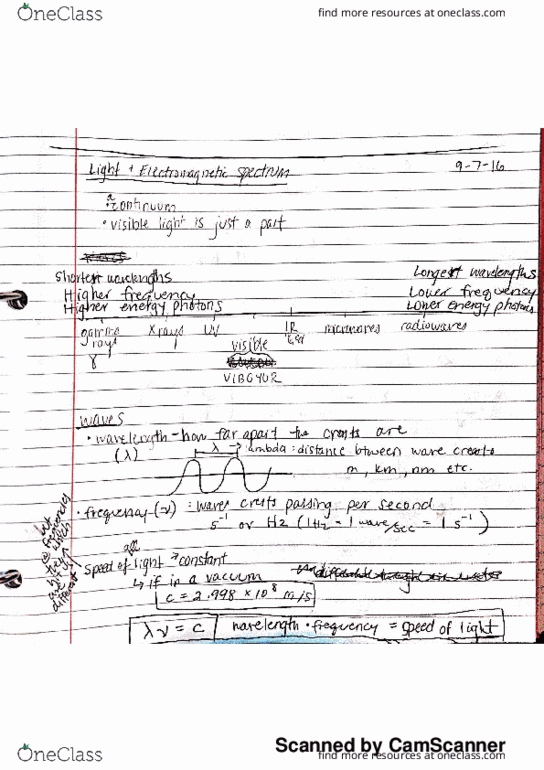 OneClass
find more resources at oneclass.com
Light + Electromagnetic Spectrum
9-7-16
a continuum
• visible light is just a part
Shortest wavelengths
Longest wavelengths
Higher frequency
Lower frequency
Higher energy photons
Lower energy photons
gamma rays
X rays
UV
visible
IR
microwaves
radiowaves
γ
VIBGYOR
waves
• wavelength - how far apart the crests are
(λ)
λ → lambda: distance btween wave crests
m, km, nm etc.
• frequency - (ν) : waves crests passing per second
s⁻¹ or Hz (1Hz = 1 wave/sec = 1 s⁻¹)
speed of all light → constant
↳ if in a vacuum
c = 2.998 × 10⁸ m/s
λν = c
wavelength · frequency = speed of light
Scanned by CamScanner
OneClass
find more resources at oneclass.com